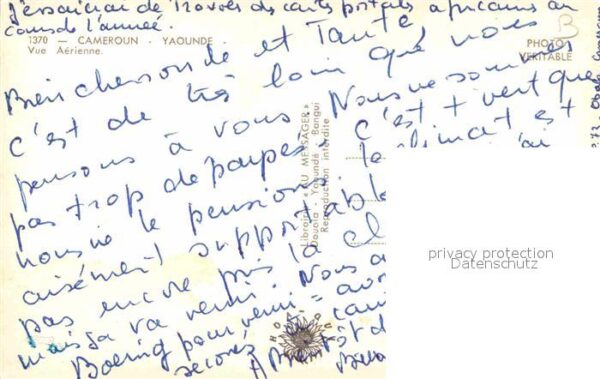 J'essaierai de trouver des cartes postales africaines au
cours de l'année.
1370 — CAMEROUN - YAOUNDE -
Vue Aérienne.
PHOTO
VERITABLE
B
Bien cher oncle et Tante
C'est de très loin que nous
pensons à vous. Nous ne sommes
pas trop dépaysés, c'est + vert que
nous ne le pensions. le climat est
aisément supportable
pas encore pris la cl
mais ça va venir. Nous a
Boeing pour venir = avo
secoués
Librairie « AU MESSAGER »
Douala - Yaoundé - Bangui
Reproduction interdite
privacy protection
Datenschutz